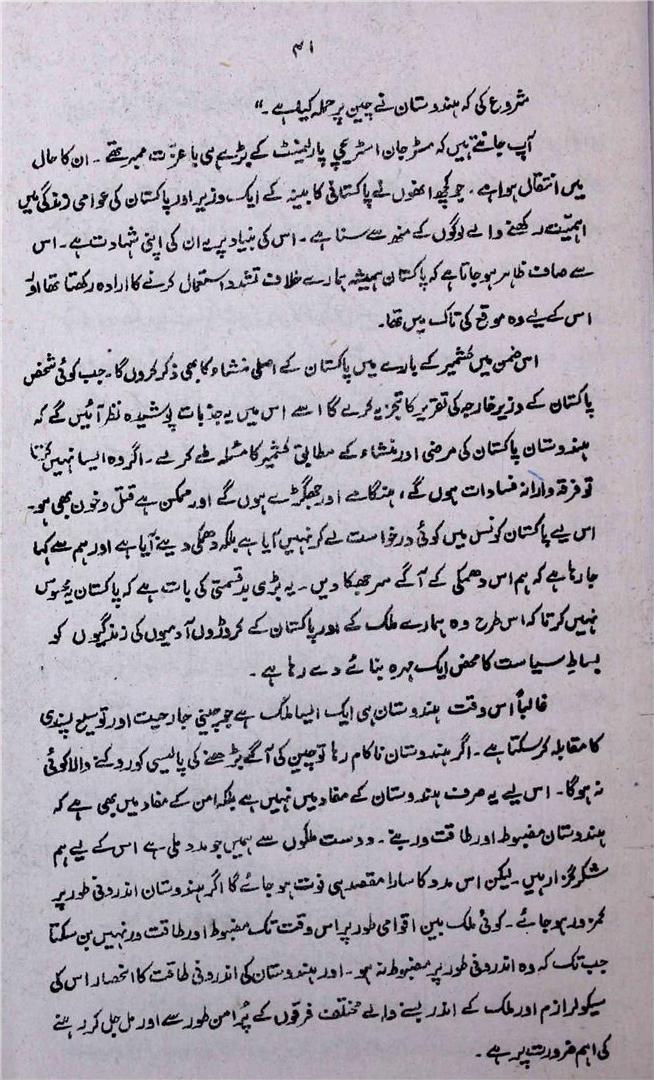 ۳۱
شروع کی کہ ہندوستان نے چین پر حملہ کیا ہے۔“
آپ جانتے ہیں کہ مسٹر جان اسٹریچی پارلیمنٹ کے بڑے ہی باعزت ممبر تھے۔ ان کا حال
میں انتقال ہوا ہے۔ جو کچھ انھوں نے پاکستانی کابینہ کے ایک وزیر اور پاکستان کی عوامی زندگی میں
اہمیت رکھنے والے لوگوں کے منھ سے سنا ہے۔ اس کی بنیاد پر یہ ان کی اپنی شہادت ہے۔ اس
سے صاف ظاہر ہو جاتا ہے کہ پاکستان ہمیشہ ہمارے خلاف تشدد استعمال کرنے کا ارادہ رکھتا تھا اور
اس کے لیے وہ موقع کی تاک میں تھا۔
اس ضمن میں کشمیر کے بارے میں پاکستان کے اصلی منشاء کا بھی ذکر کروں گا۔ جب کوئی شخص
پاکستان کے وزیر خارجہ کی تقریر کا تجزیہ کرے گا اسے اس میں یہ جذبات پوشیدہ نظر آئیں گے کہ
ہندوستان پاکستان کی مرضی اور منشاء کے مطابق کشمیر کا مسئلہ طے کرے۔ اگر وہ ایسا نہیں کرتا
تو فرقہ وارانہ فسادات ہوں گے، ہنگامے اور جھگڑے ہوں گے اور ممکن ہے قتل و خون بھی ہو۔
اس لیے پاکستان کونسل میں کوئی درخواست لے کر نہیں آیا ہے بلکہ دھمکی دینے آیا ہے اور ہم سے کہا
جا رہا ہے کہ ہم اس دھمکی کے آگے سر جھکا دیں۔ یہ بڑی بدقسمتی کی بات ہے کہ پاکستان یہ محسوس
نہیں کرتا کہ اس طرح وہ ہمارے ملک کے اور پاکستان کے کروڑوں آدمیوں کی زندگیوں کو
بساطِ سیاست کا محض ایک مہرہ بنائے دے رہا ہے۔
غالباً اس وقت ہندوستان ہی ایک ایسا ملک ہے جو چینی جارحیت اور توسیع پسندی
کا مقابلہ کر سکتا ہے۔ اگر ہندوستان ناکام رہا تو چین کی آگے بڑھنے کی پالیسی کو روکنے والا کوئی
نہ ہوگا۔ اس لیے یہ صرف ہندوستان کے مفاد میں نہیں ہے بلکہ امن کے مفاد میں بھی ہے کہ
ہندوستان مضبوط اور طاقت ور بنے۔ دوست ملکوں سے ہمیں جو مدد ملی ہے اس کے لیے ہم
شکر گزار ہیں۔ لیکن اس مدد کا سارا مقصد ہی فوت ہو جائے گا اگر ہندوستان اندرونی طور پر
کمزور ہو جائے۔ کوئی ملک بین اقوامی طور پر اس وقت تک مضبوط اور طاقت ور نہیں بن سکتا
جب تک کہ وہ اندرونی طور پر مضبوط نہ ہو۔ اور ہندوستان کی اندرونی طاقت کا انحصار اس کی
سیکولرازم اور ملک کے اندر بسنے والے مختلف فرقوں کے پُرامن طور سے اور مل جل کر رہنے
کی اہم ضرورت پر ہے۔